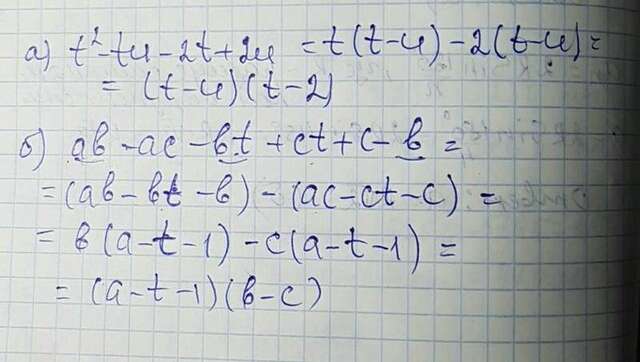 а) t² - tu - 2t + 2u = t(t-u) - 2(t-u) =
= (t-u)(t-2)
б) ab - ac - bt + ct + c - b =
= (ab - bt - b) - (ac - ct - c) =
= b(a-t-1) - c(a-t-1) =
= (a-t-1)(b-c)